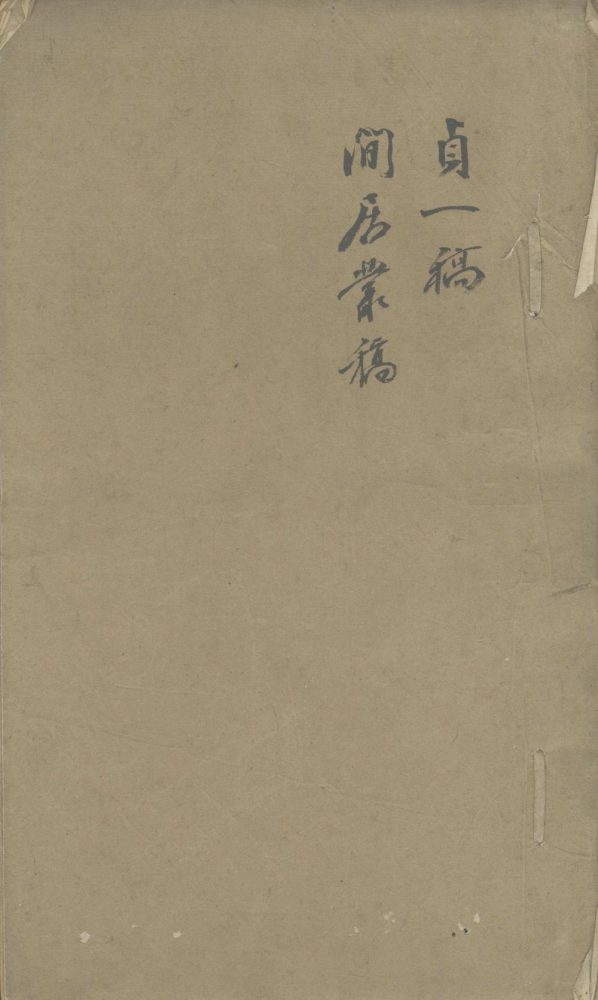 貞一稿
閒居叢稿